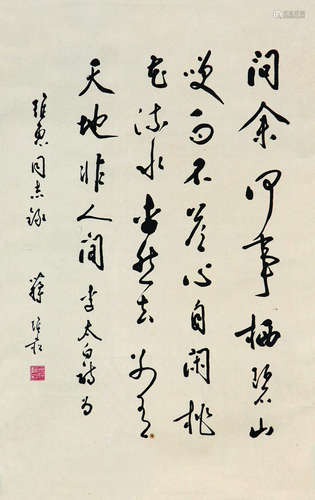 问余何事栖碧山
笑而不答心自闲桃
花流水杳然去别有
天地非人间 李太白诗为
同志录